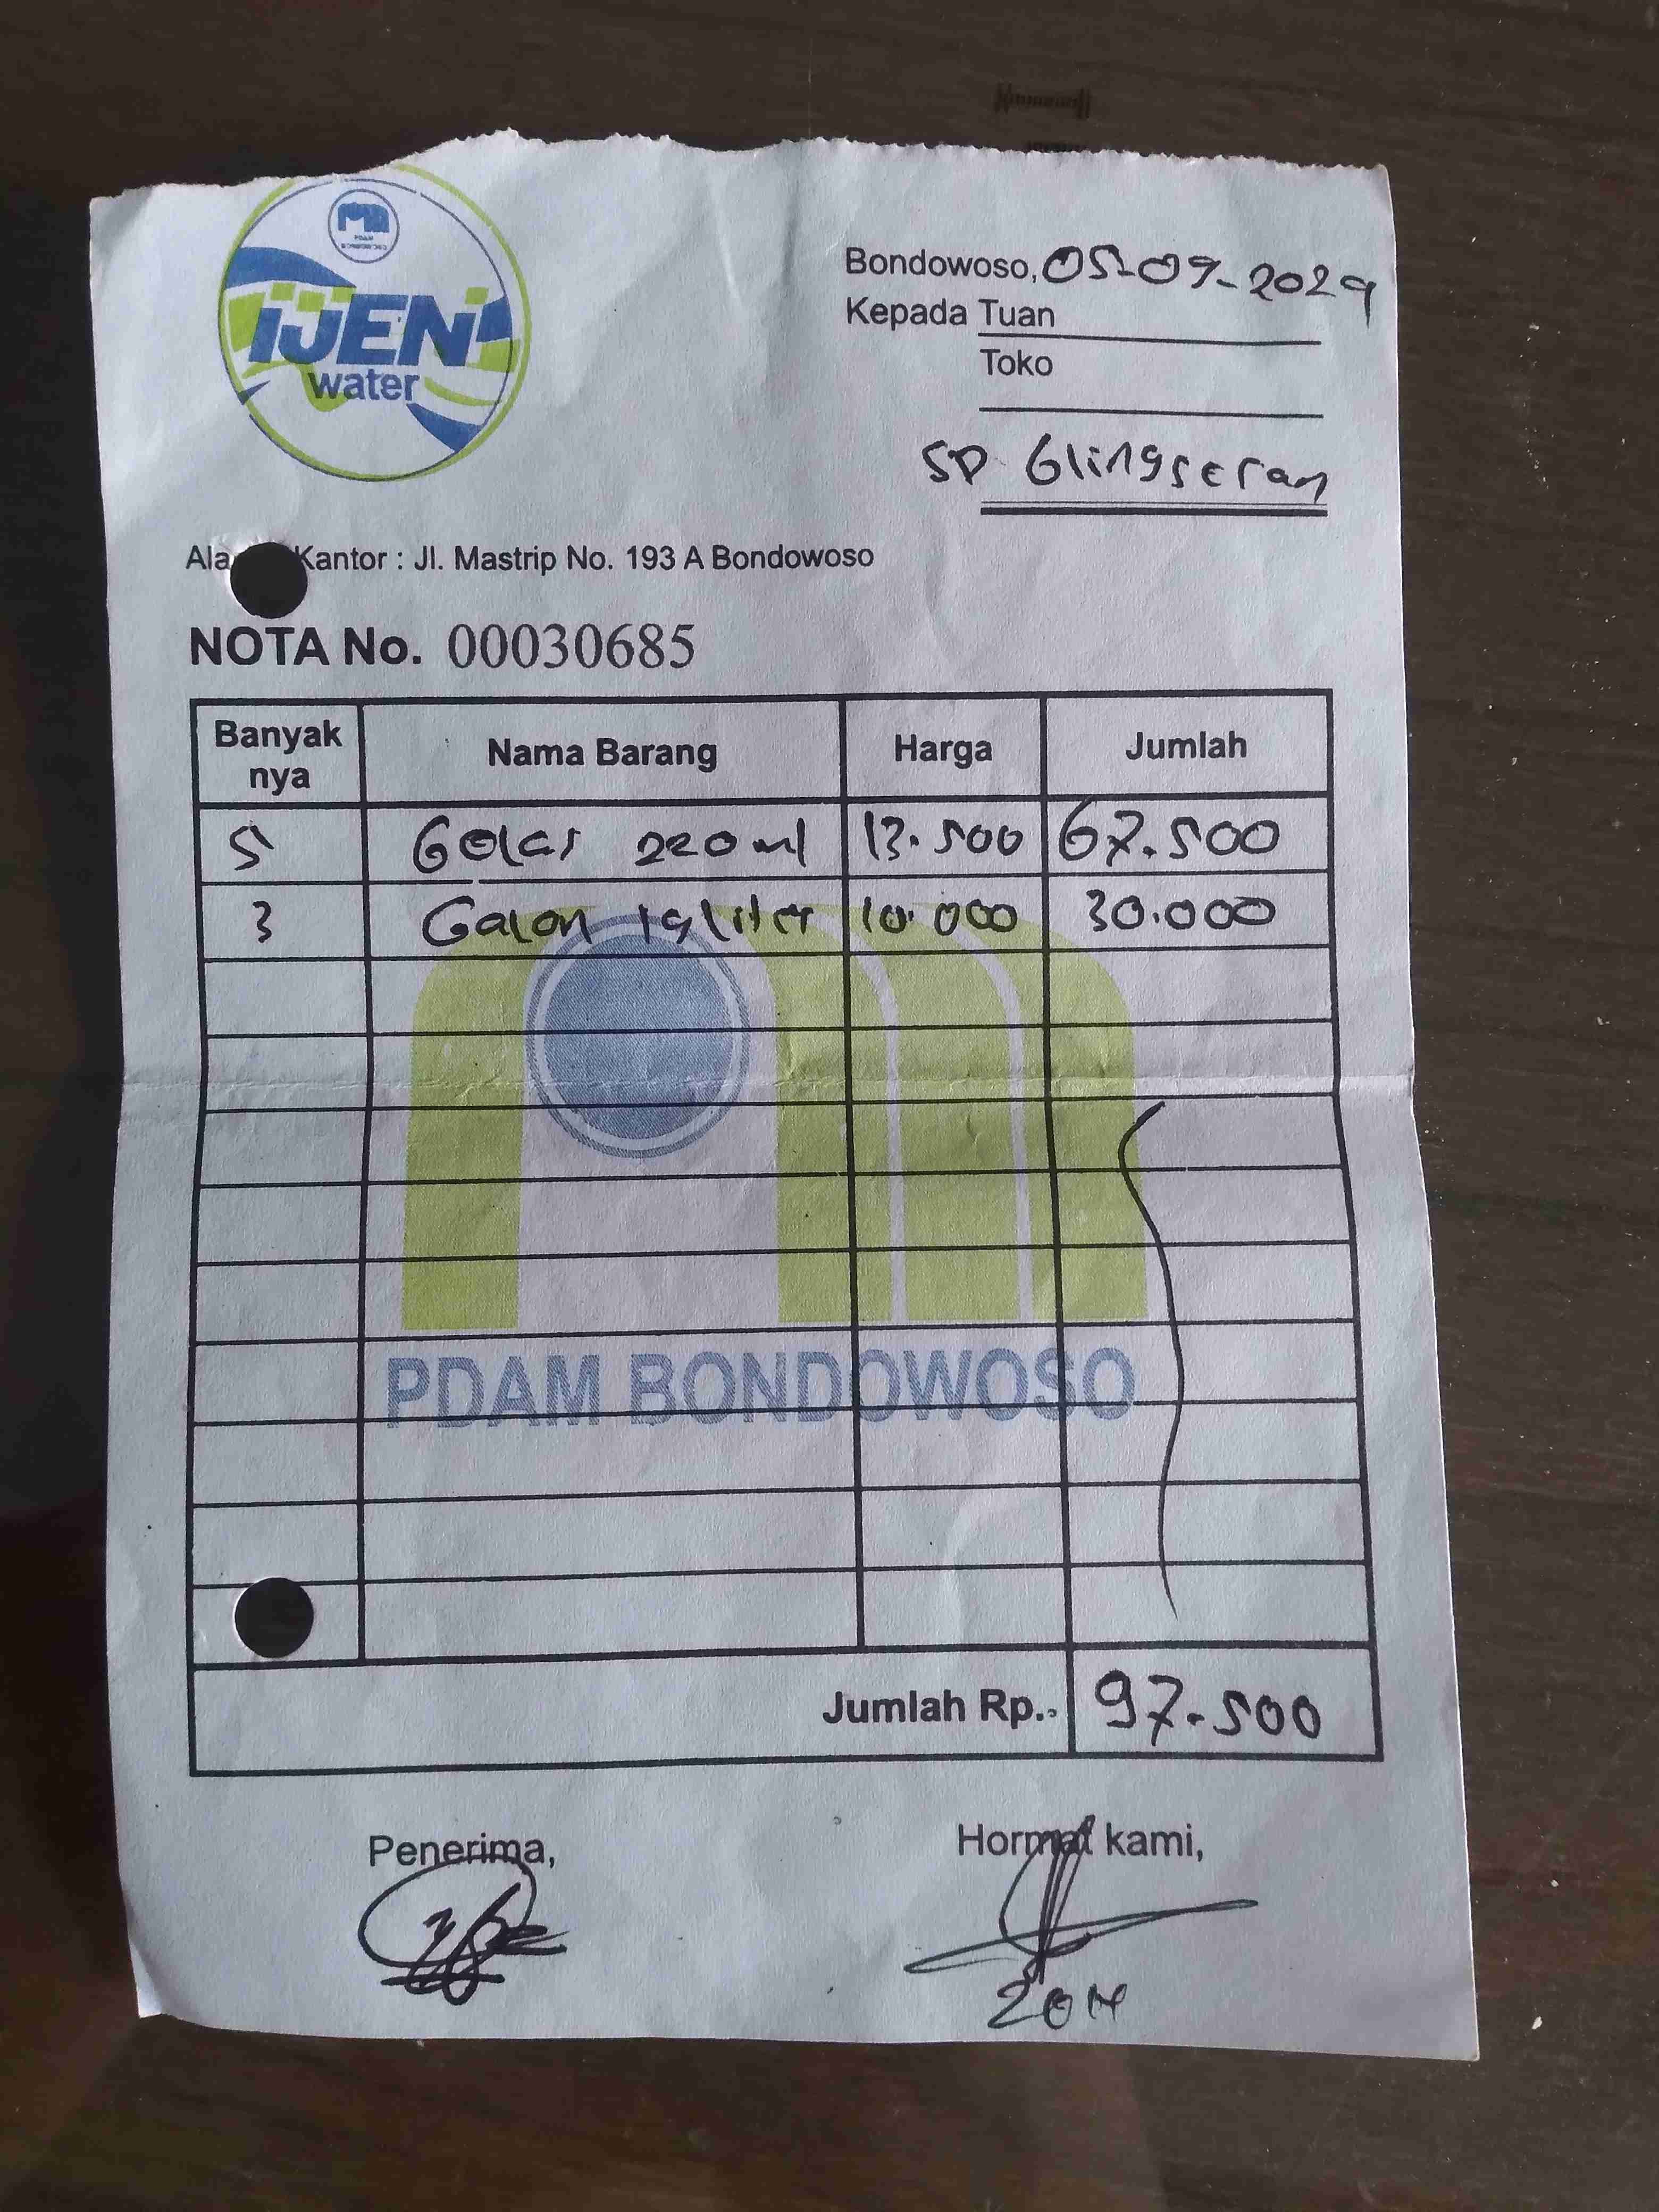 IJEN
water
Bondowoso, 05-09-2024
Kepada Tuan
Toko
SD Glingseran
Kantor : Jl. Mastrip No. 193 A Bondowoso
NOTA No. 00030685
Banyak nya Nama Barang Harga Jumlah
5 Gelas 220 ml 13.500 67.500
3 Galon 19 liter 10.000 30.000
PDAM BONDOWOSO
Jumlah Rp.- 97.500
Penerima, Hormat kami,